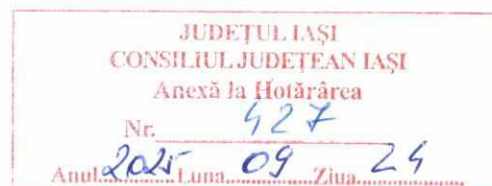 JUDEŢUL IAŞI
CONSILIUL JUDEŢEAN IAŞI
Anexă la Hotărârea
Nr. 427
Anul 2025 Luna 09 Ziua 24